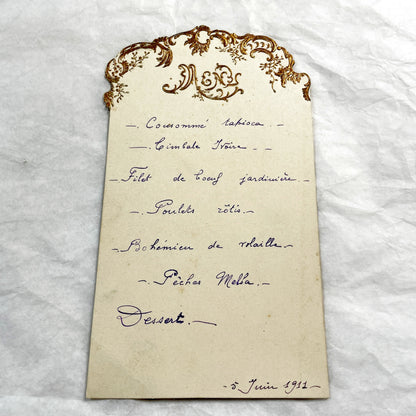 Menu
—. Consommé tapioca —
—. Timbale Ivoire. — -
— Filet de bœuf jardinière. —
—. Poulets rôtis. —
—. Bohémien de volaille. —
—. Pêches Melba. —
Dessert. —
— 5 Juin 1911 —